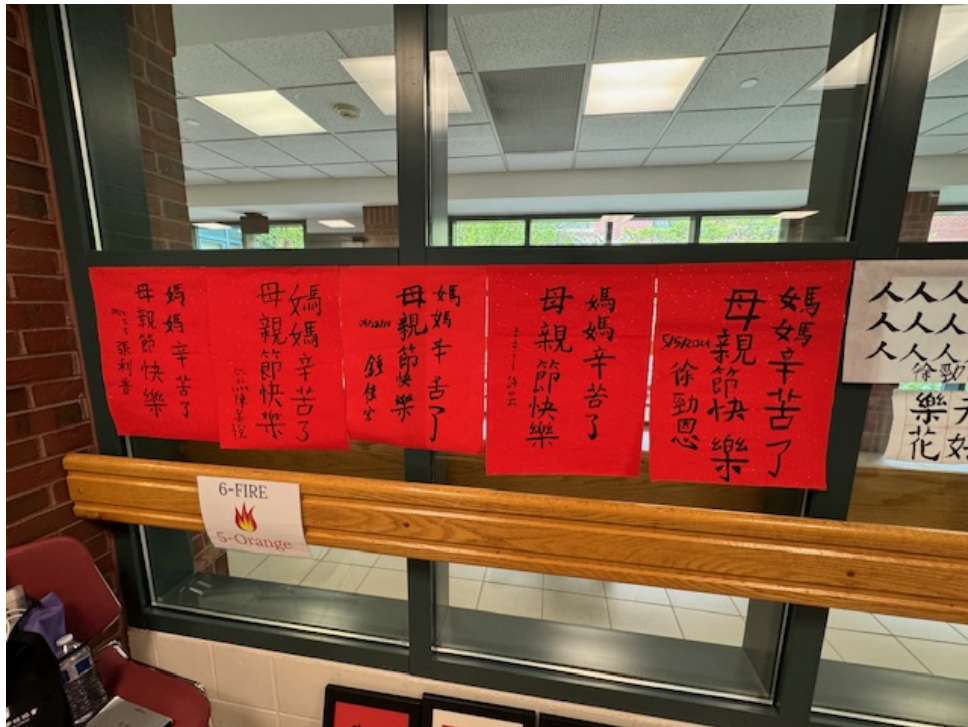 媽媽辛苦了
母親節快樂
張利香
媽媽辛苦了
母親節快樂
媽媽辛苦了
母親節快樂
媽媽辛苦了
母親節快樂
許芸
媽媽辛苦了
母親節快樂
5/5/2024
徐勁恩
人人人
人人人
人人人
徐勁
樂
花
好
6-FIRE
5-Orange